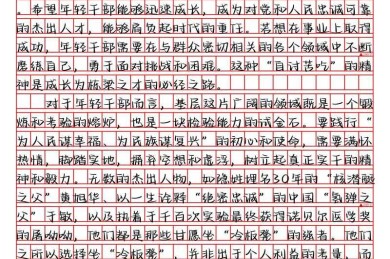 希望年轻干部能够迅速成长，成为对党和人民忠诚可靠
的杰出人才，能够肩负起时代的重任。若想在事业上取得
成功，年轻干部需要在与群众密切相关的各个领域中不断
磨练自己，勇于面对挑战和困难。这种“自讨苦吃”的精
神是成长为栋梁之才的必经之路。
对于年轻干部而言，基层这片广阔的领域既是一个锻
炼和考验的熔炉，也是一块检验能力的试金石。要践行“
为人民谋幸福、为民族谋复兴”的初心和使命，需要满怀
热情，脚踏实地，摒弃空想和虚浮，树立起真正实干的精
神和毅力。无数的杰出人物，如隐姓埋名30年的“核潜艇
之父”黄旭华、以一生诠释“绝密忠诚”的中国“氢弹之
父”于敏，以及执着于千百次实验最终获得诺贝尔医学奖
的屠呦呦，他们都是那些甘愿坐“冷板凳”的强者。他们
之所以选择坐“冷板凳”，并非出于个人利益的考量，而